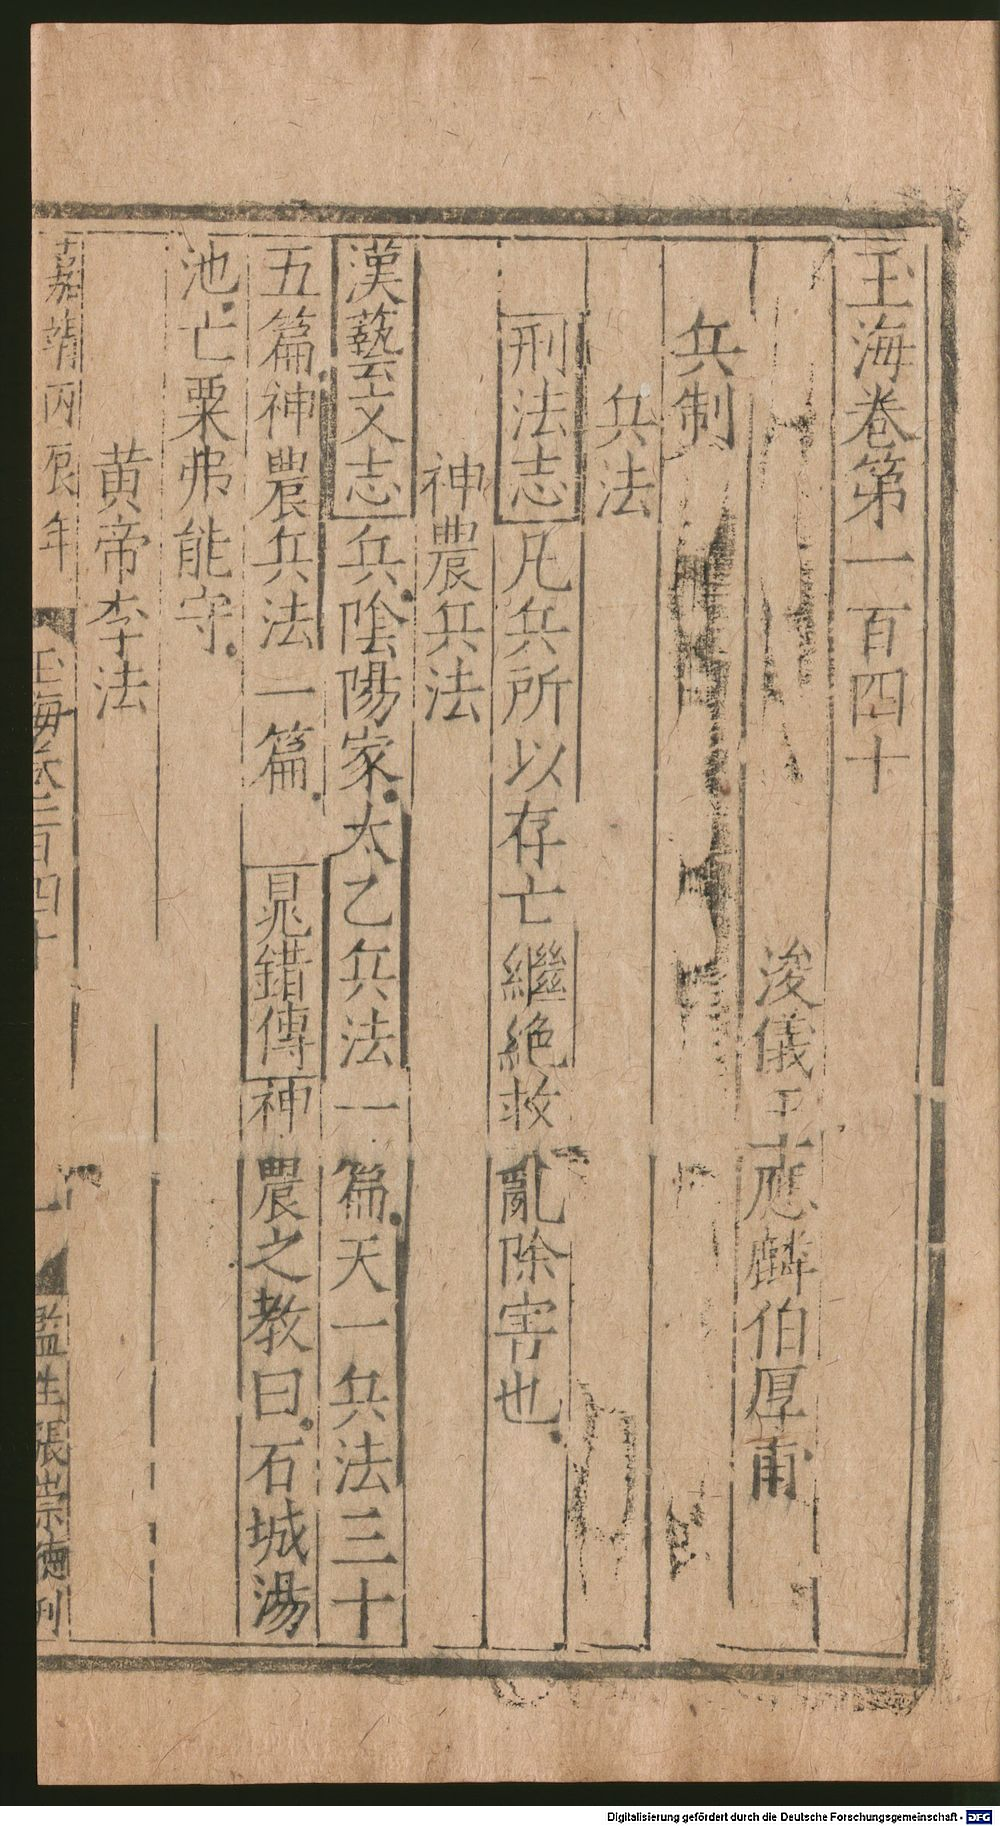 玉海卷第一百四十
浚儀王應麟伯厚甫
兵制
兵法
刑法志凡兵所以存亡繼絶救亂除害也
神農兵法
漢藝文志兵陰陽家太乙兵法一篇天一兵法三十
五篇神農兵法一篇晁錯傳神農之教曰石城湯
池亡粟弗能守
黄帝李法
嘉靖丙辰年 玉海卷一百四十 一 監生張崇德刊
Digitalisierung gefördert durch die Deutsche Forschungsgemeinschaft - DFG